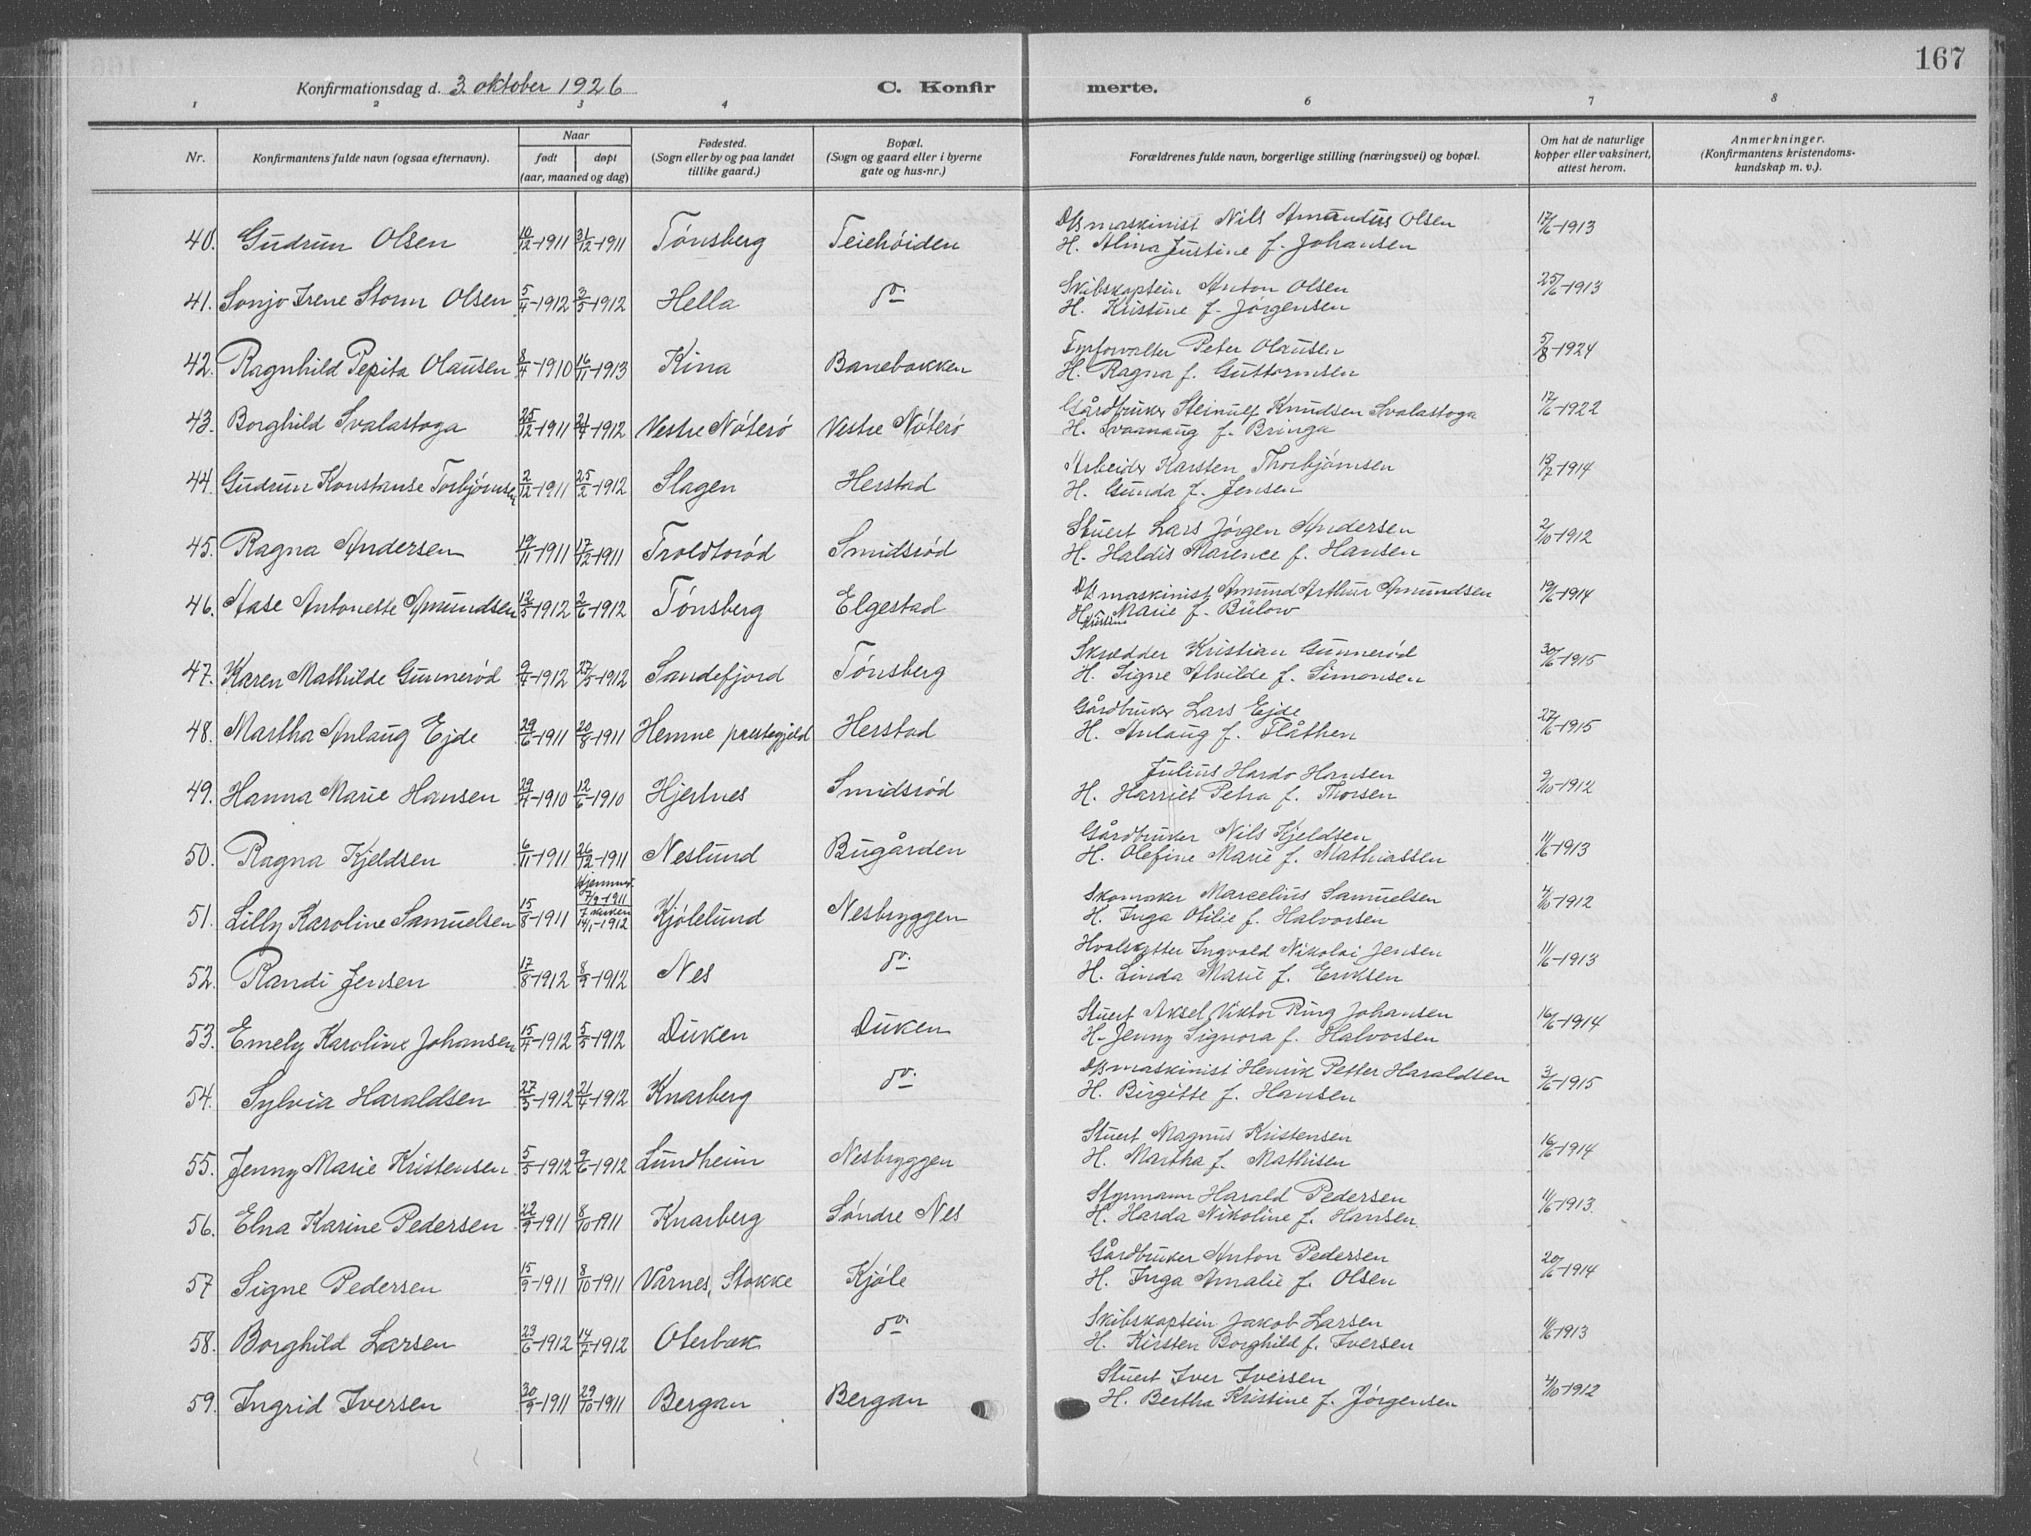 167
Konfirmationsdag d. 3. oktober 1926
C. Konfirmerte.
1 2 3 4 6 7 8
Nr. | Konfirmantens fulde navn (ogsaa efternavn). | Naar født døpt (aar, maaned og dag) | Fødested. (Sogn eller by og paa landet tillike gaard.) | Bopæl. (Sogn og gaard eller i byerne gate og hus-nr.) | Forældrenes fulde navn, borgerlige stilling (næringsvei) og bopæl. | Om hat de naturlige kopper eller vaksinert, attest herom. | Anmerkninger. (Konfirmantens kristendoms-kundskap m. v.).
40. Gudrun Olsen 10/12-1911 31/12-1911 Tønsberg Teiehøiden D/S maskinist Nils Amandus Olsen 17/6-1913
H. Alma Justine f. Johansen
41. Sonjo Irene Storm Olsen 5/4-1912 3/5-1912 Hella do Skibskaptein Anton Olsen 25/6-1913
H. Kristine f. Jørgensen
42. Ragnhild Pepita Olausen 8/4-1910 16/11-1913 Kina Banebakken Fyrforvalter Peter Olausen 5/8-1924
H. Ragna f. Guttormsen
43. Borghild Svalastoga 25/12-1911 21/4-1912 Vestre Nøterø Vestre Nøterø Gårdbruker Steinulf Knudsen Svalastoga 17/6-1922
H. Svaanaug f. Bringa
44. Gudrun Konstanse Torbjørnsen 2/12-1911 25/2-1912 Slagen Herstad Arbeider Karsten Thorbjørnsen 1914
H. Gunda f. Jensen
45. Ragna Andersen 19/11-1911 17/12-1911 Troldtorød Smidsrød Stuert Lars Jørgen Andersen 2/10-1912
H. Haldis Marence f. Hansen
46. Aase Antonette Amundsen 12/5-1912 2/6-1912 Tønsberg Elgestad D/S maskinist Amund Arthur Amundsen 19/6-1914
H. Kristine Marie f. Bülow
47. Karen Mathilde Gunnerød 9/4-1912 27/5-1912 Sandefjord Tønsberg Skrædder Kristian Gunnerød 30/6-1915
H. Signe Alvilde f. Simonsen
48. Martha Anlaug Ejde 29/6-1911 20/8-1911 Hemne prestegjeld Herstad Gårdbruker Lars Ejde 27/6-1915
H. Anlaug f. Flåthen
49. Hanna Marie Hansen 29/4-1910 12/6-1910 Hjertnes Smidsrød Julius Hardo Hansen 9/10-1912
H. Harriet Petra f. Thorsen
50. Ragna Kjeldsen 6/11-1911 26/12-1911 Neslund Bugården Gårdbruker Nils Kjeldsen 11/6-1913
H. Olefine Marie f. Mathiassen
51. Lilly Karoline Samuelsen 15/8-1911 Hjemmed. 7/9-1911 i kirken 14/1-1912 Kjølelund Nesbryggen Skomaker Marcelius Samuelsen 4/10-1912
H. Inga Otilie f. Halvorsen
52. Randi Jensen 17/8-1912 8/9-1912 Nes do Hvalskytter Ingvald Nikolai Jensen 11/6-1913
H. Linda Marie f. Eriksen
53. Emely Karoline Johansen 15/4-1912 5/5-1912 Duken Duken Stuert Aksel Viktor Ring Johansen 16/6-1914
H. Jenny Signora f. Halvorsen
54. Sylvia Haraldsen 27/3-1912 21/4-1912 Knarberg do D/S maskinist Henrik Petter Haraldsen 3/6-1915
H. Birgitte f. Hansen
55. Jenny Marie Kristensen 5/5-1912 9/6-1912 Lundheim Nesbryggen Stuert Magnus Kristensen 16/6-1914
H. Martha f. Mathisen
56. Elna Karine Pedersen 22/9-1911 8/10-1911 Knarberg Søndre Nes Styrmann Harald Pedersen 11/6-1913.
H. Harda Nikoline f. Hansen
57 Signe Pedersen 15/9-1911 8/10-1911 Vårnes, Stokke Kjøle Gårdbruker Anton Pedersen 20/6-1914
H. Inga Amalie f. Olsen
58. Borghild Larsen 23/6-1912 14/7-1912 Oterbæk do Skibskaptein Jakob Larsen 11/6-1913
H. Kirsten Borghild f. Iversen
59. Ingrid Iversen 30/9-1911 29/10-1911 Bergan Bergan Stuert Iver Iversen 4/10-1912
H. Bertha Kristine f. Jørgensen